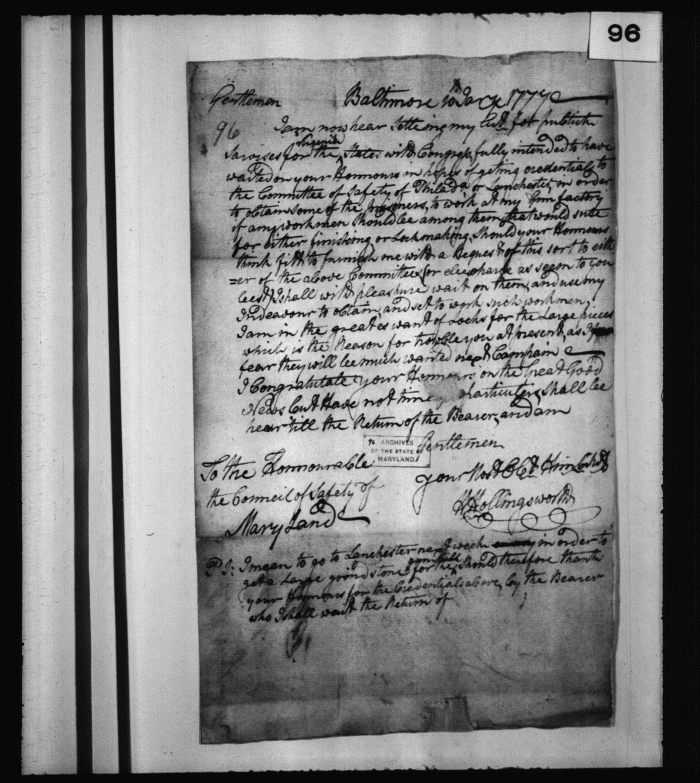 96
Gentlemen Baltimore 10th Jany 1777
96
I am now hear Setteling my for publick
Sarvises for the Suverin States with Congress, fully intended to have
waited on your Honnours in hopes of geting credentials to
the Committee of Safety of Philada or Lanchester, in order
to obtain some of the prisoners, to work at my Gun factory
if any workmen Should be among them that would sute
for either finishing or Lockmaking, Should your Honnours
think fitt to furnish me with a Request of this sort to eith
=er of the above Committees, or elce as seem to you
best, I shall with pleasure wait on them, and use my
Indeavour to obtain, and set to work such workmen,
I am in the greatest want of Locks for the Large pieces
which is the Reason for trouble you at present, as I
fear they will be much wanted next Campain
I Congratulate your Honnours on the Great Good
News but Have not time particular, Shall be
hear till the Return of the Bearer, and am
Gentlemen
96 ARCHIVES
OF THE STATE OF
MARYLAND
To the Honnourable
your Most Obt Hum
the Council of Safety of
H Hollingsworth
Maryland
PS: I mean to go to Lanchester next week in order to
get a Large grindstone for the gun mill, Should therefore thank
your Honnours for the Credentials above, by the Bearer
who I shall wait the Return of